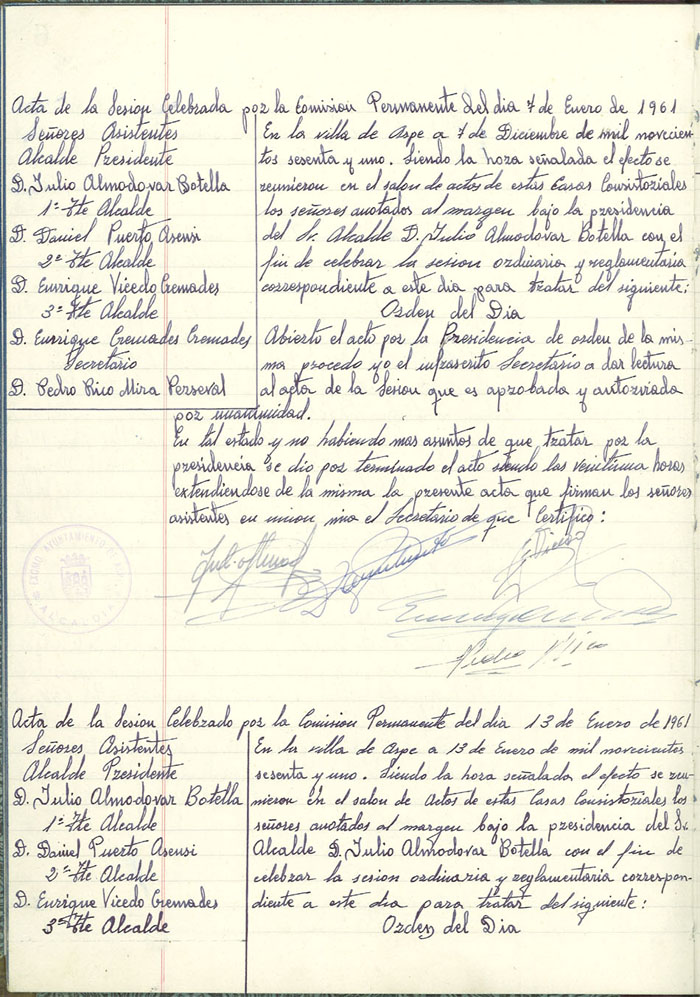 Acta de la Sesion Celebrada por la Comision Permanente del dia 7 de Enero de 1961
Señores Asistentes
Alcalde Presidente
D. Julio Almodovar Botella
1º Tte Alcalde
D. Daniel Puerto Asensi
2º Tte Alcalde
D. Enrrique Vicedo Cremades
3º Tte Alcalde
D. Enrrique Cremades Cremades
Secretario
D. Pedro Rico Mira Perseval
En la villa de Aspe a 7 de Diciembre de mil novecien
tos sesenta y uno. Siendo la hora señalada el efecto se
reunieron en el salon de actos de estas Casas Consistoriales
los señores anotados al margen bajo la presidencia
del Sr. Alcalde D. Julio Almodovar Botella con el
fin de celebrar la sesion ordinaria y reglamentaria
correspondiente a este dia para tratar del siguiente:
Orden del Dia
Abierto el acto por la Presidencia de orden de la mis
ma procedo yo el infrascrito Secretario a dar lectura
al acta de la Sesion que es aprobada y autorizada
por unanimidad.
En tal estado y no habiendo mas asuntos de que tratar por la
presidencia se dio por terminado el acto siendo las veintiuna horas
extendiendose de la misma la presente acta que firman los señores
asistentes en union mia el Secretario de que Certifico:
EXCMO. AYUNTAMIENTO DE ASPE
ALCALDIA
Vicedo
Pedro Rico
Acta de la Sesion Celebrado por la Comision Permanente del dia 13 de Enero de 1961
Señores Asistentes
Alcalde Presidente
D. Julio Almodovar Botella
1º Tte Alcalde
D. Daniel Puerto Asensi
2º Tte Alcalde
D. Enrrique Vicedo Cremades
3º Tte Alcalde
En la villa de Aspe a 13 de Enero de mil novecientos
sesenta y uno. Siendo la hora señalada el efecto se reu
nieron en el salon de Actos de estas Casas Consistoriales los
señores anotados al margen bajo la presidencia del Sr.
Alcalde D. Julio Almodovar Botella con el fin de
celebrar la sesion ordinaria y reglamentaria correspon
diente a este dia para tratar del siguiente:
Orden del Dia